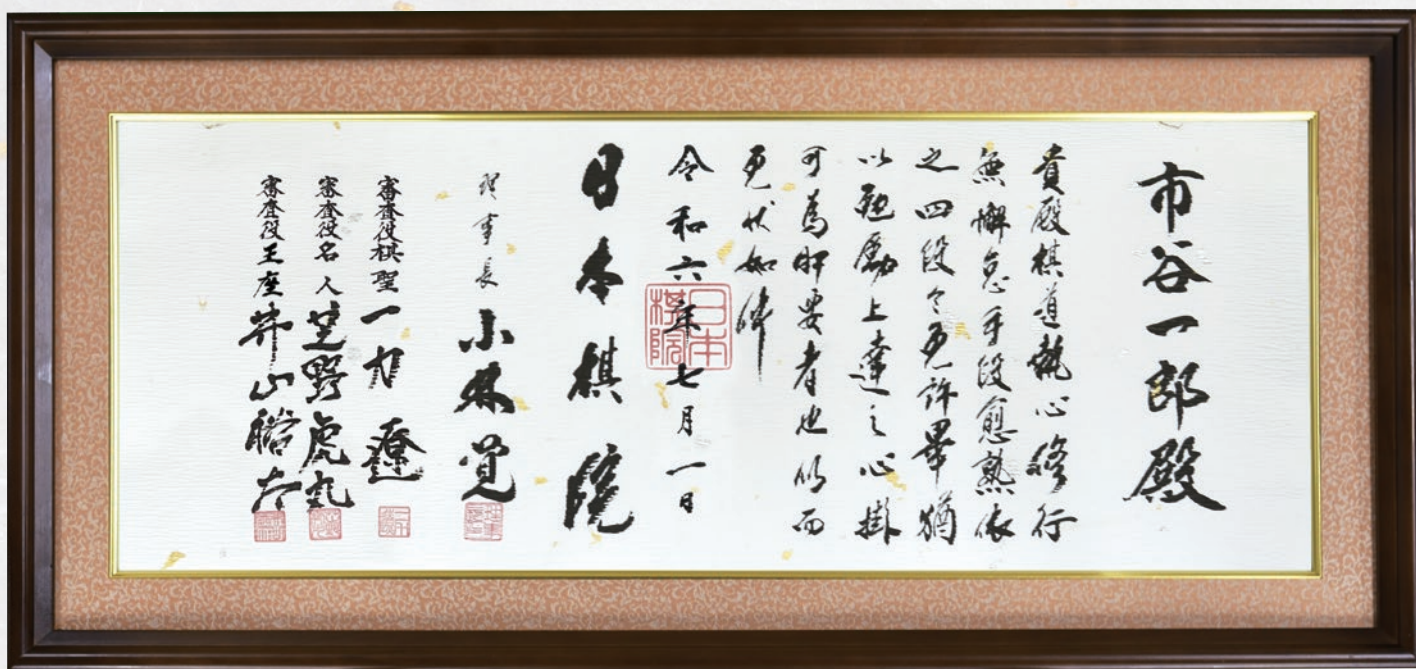 市谷一郎殿
貴殿棋道執心修行
無懈怠手段愈熟依
之四段令免許畢猶
以勉励上達之心掛
可為肝要者也仍而
免状如件
令和六年七月一日
日本棋院
日本棋院
理事長 小林覚
審査役棋聖 一力遼
審査役名人 芝野虎丸
審査役王座 井山裕太